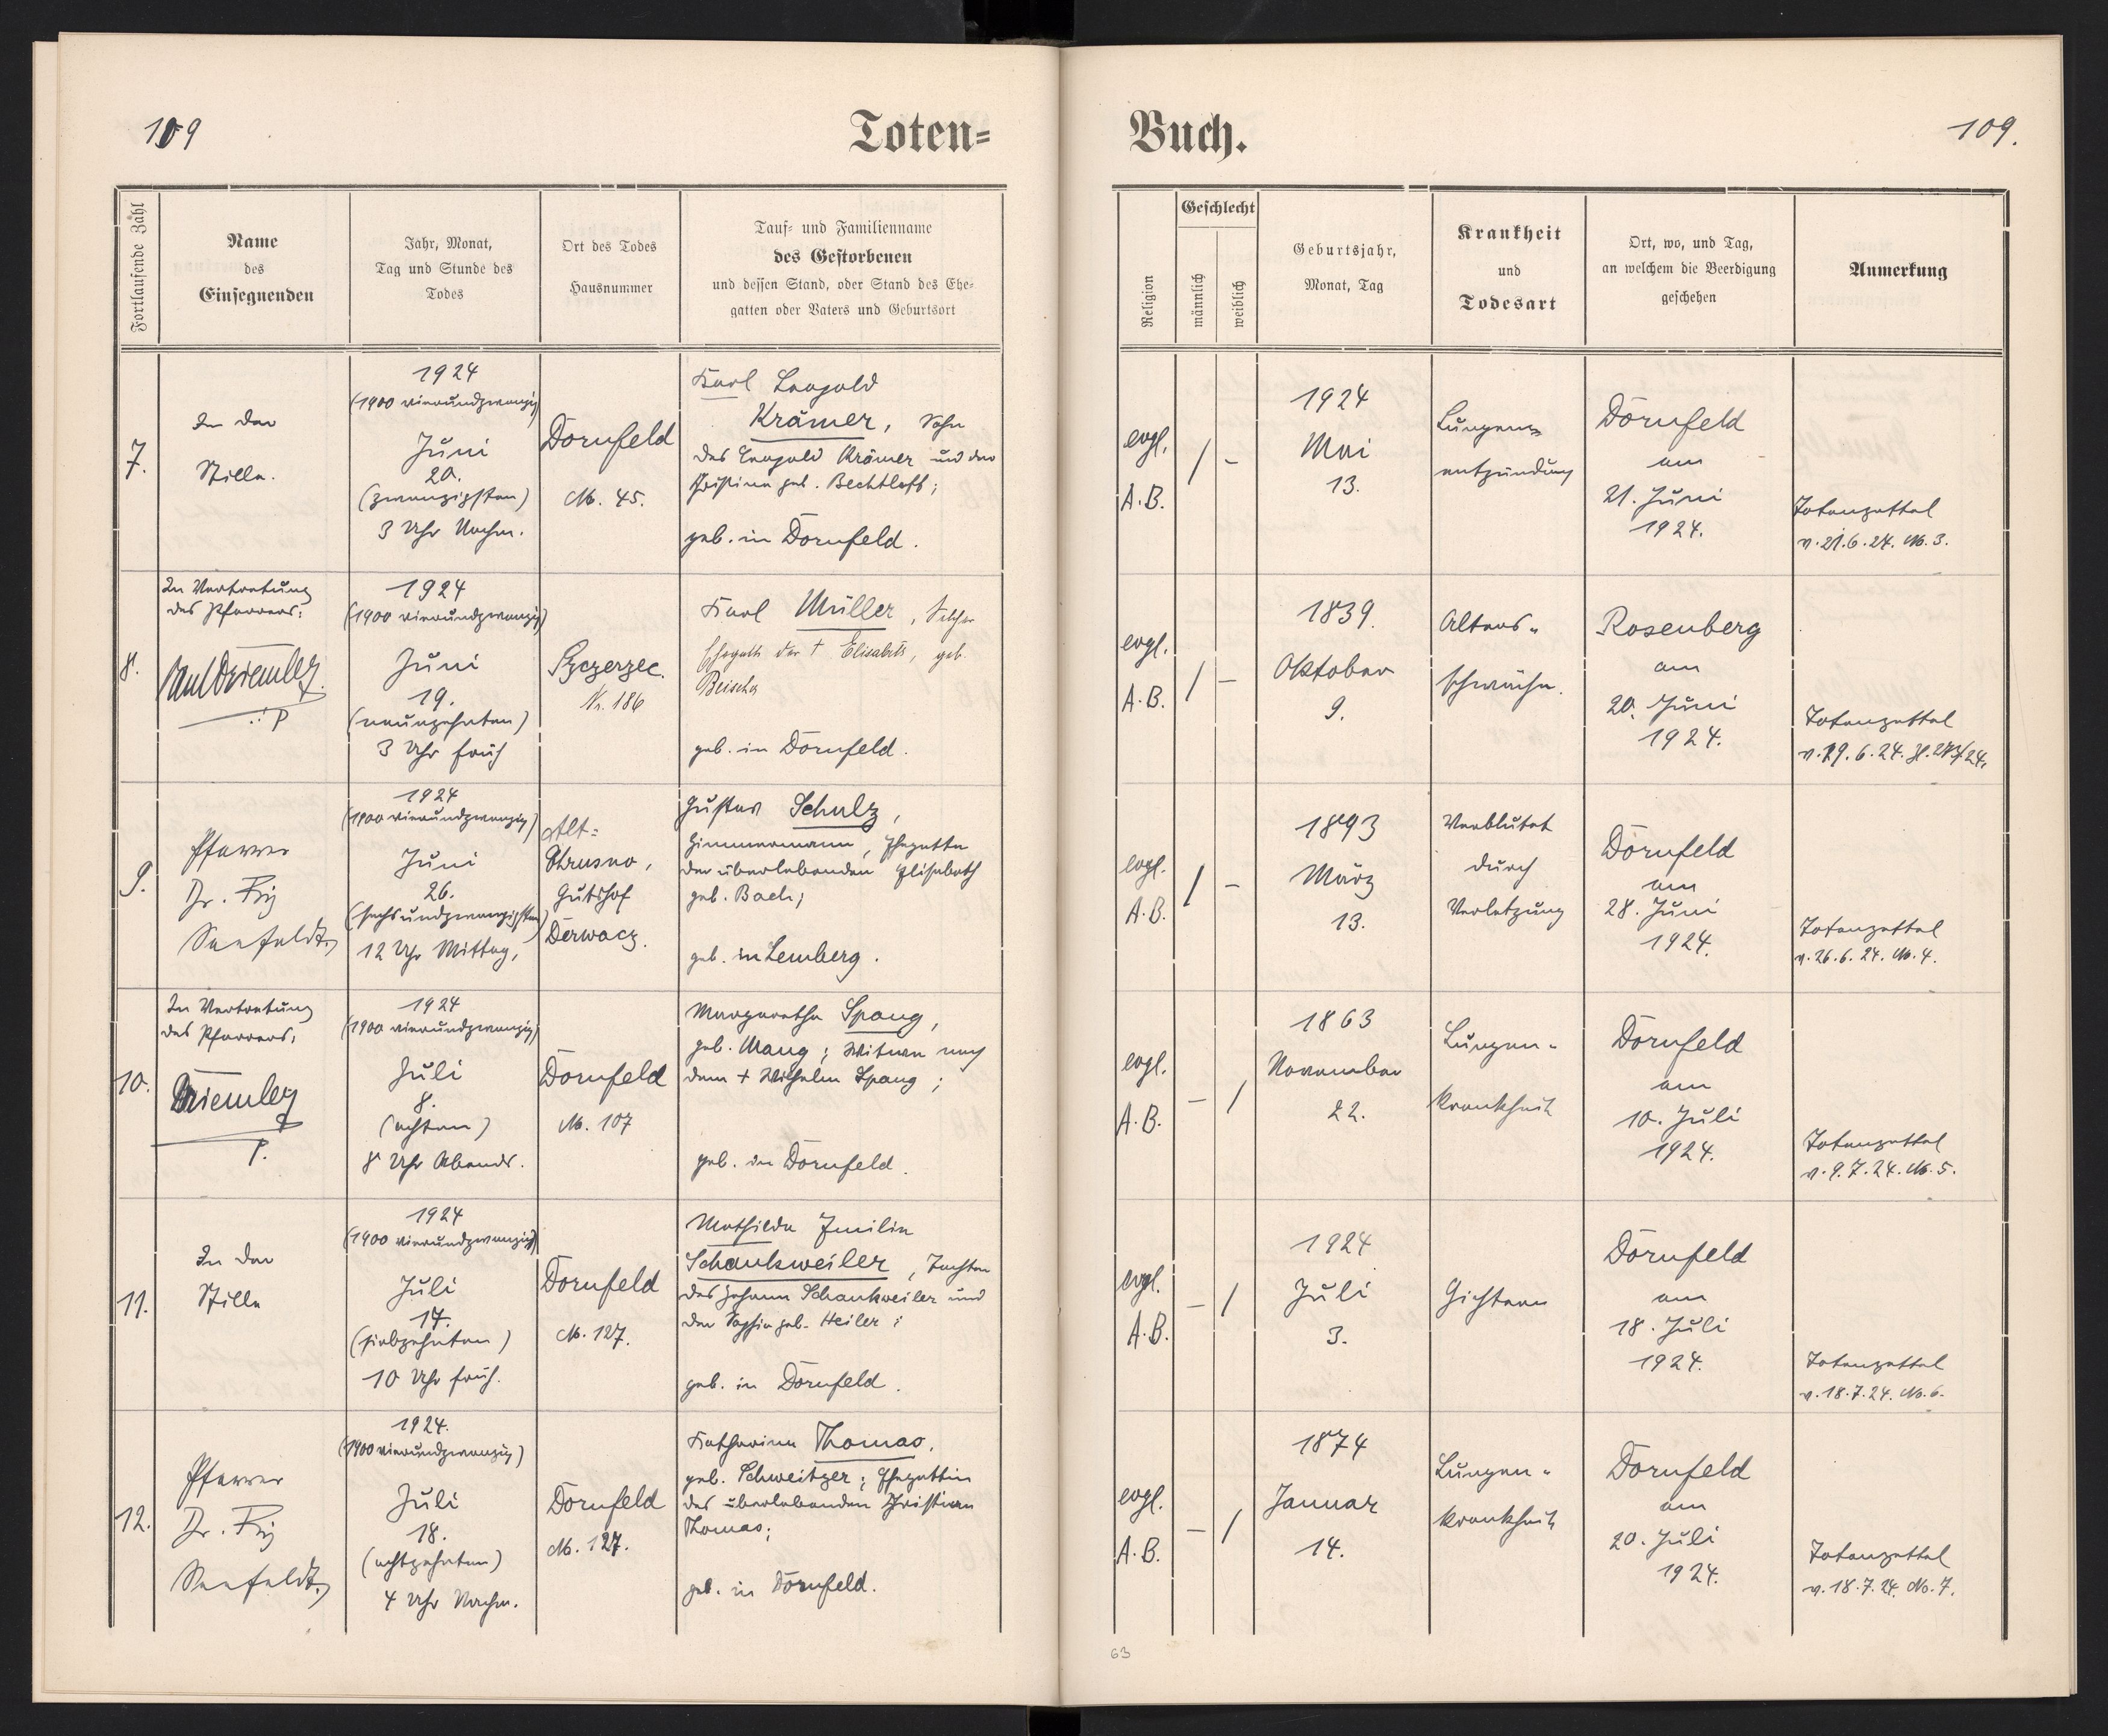 109
Toten-
Fortlaufende Zahl
Name
des
Einsegnenden
Jahr, Monat,
Tag und Stunde des
Todes
Ort des Todes
Hausnummer
Tauf- und Familienname
des Gestorbenen
und dessen Stand, oder Stand des Ehe-
gatten oder Vaters und Geburtsort
7.
In der
Stille.
1924
(1900 vierundzwanzig)
Juni
20.
(zwanzigsten)
3 Uhr Nachm.
Dornfeld
No. 45.
Karl Leopold
Krämer, Sohn
des Leopold Krämer und der
Christine geb. Bechtloff;
geb. in Dornfeld.
8.
In Vertretung
des Pfarrers:
1924
(1900 vierundzwanzig)
Juni
19.
(neunzehnten)
3 Uhr früh
Szczerzec.
Nr. 186
Karl Müller,
Ehegatte der † Elisabeth, geb.
geb. in Dornfeld.
9.
Pfarrer
Dr. Fritz
Seefeldt
1924
(1900 vierundzwanzig)
Juni
26.
(sechsundzwanzigsten)
12 Uhr Mittag,
Alt-
Gutshof
Derwacz.
Gustav Schulz,
Zimmermann, Ehegatte
der überlebenden Elisabeth
geb. Bach;
geb. in Lemberg.
10.
In Vertretung
des Pfarrers,
1924
(1900 vierundzwanzig)
Juli
8.
(achten)
8 Uhr Abends.
Dornfeld
No. 107
Margaretha Spang,
geb. Mang; Witwe nach
dem † Wilhelm Spang;
geb. in Dornfeld.
11.
In der
Stille
1924
(1900 vierundzwanzig)
Juli
17.
(siebzehnten)
10 Uhr früh.
Dornfeld
No. 127.
Mathilde Emilie
Schankweiler, Tochter
des Johann Schankweiler und
der Sophie geb. Heiler;
geb. in Dornfeld.
12.
Pfarrer
Dr. Fritz
Seefeldt
1924.
(1900 vierundzwanzig)
Juli
18.
(achtzehnten)
4 Uhr Nachm.
Dornfeld
No. 127.
Katharina Thomas,
geb. Schweitzer; Ehegattin
des überlebenden Christian
Thomas;
geb. in Dornfeld.
Buch.
109.
Religion
Geschlecht
männlich
weiblich
Geburtsjahr,
Monat, Tag
Krankheit
und
Todesart
Ort, wo, und Tag,
an welchem die Beerdigung
geschehen
Anmerkung
evgl.
A.B.
/ -
1924
Mai
13.
Lungen-
entzündung
Dornfeld
am
21. Juni
1924.
Totenzettel
v. 21.6.24. No. 3.
evgl.
A.B.
/ -
1839.
Oktober
9.
Alters-
schwäche.
Rosenberg
am
20. Juni
1924.
Totenzettel
v. 19.6.24.
evgl.
A.B.
/ -
1893
März
13.
Verblutet
durch
Verletzung
Dornfeld
am
28. Juni
1924.
Totenzettel
v. 26.6.24. No. 4.
evgl.
A.B.
- /
1863
November
22.
Lungen-
krankheit
Dornfeld
am
10. Juli
1924.
Totenzettel
v. 9.7.24. No. 5.
evgl.
A.B.
- /
1924
Juli
3.
Gichtern
Dornfeld
am
18. Juli
1924.
Totenzettel
v. 18.7.24. No. 6.
evgl.
A.B.
- /
1874
Januar
14.
Lungen-
krankheit
Dornfeld
am
20. Juli
1924.
Totenzettel
v. 18.7.24. No. 7.
63